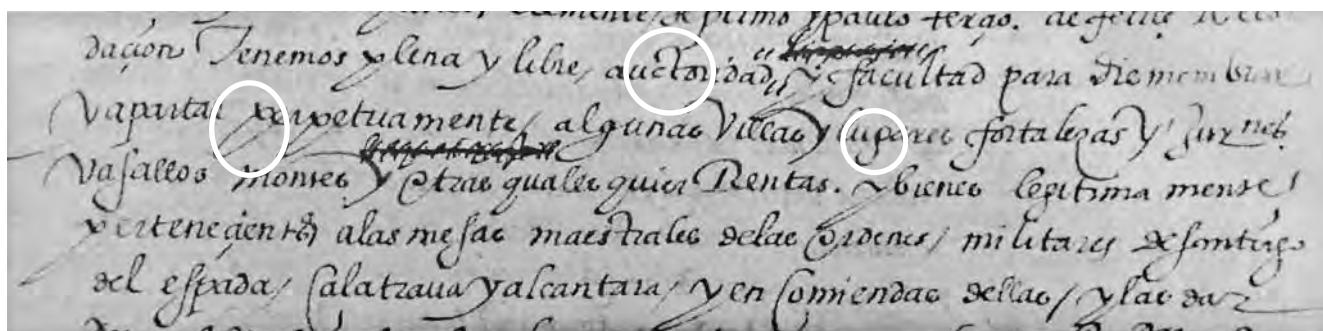 clemente, septimo y paulo terçio. de feliçe Reco
daçion Tenemos plena y libre, auctoridad, y facultad para diemembrar
y apartar perpetuamente, algunas Villas y lugares fortalezas y Jur nes
Vasallos montes y Otras quales quier Rentas. y bienes legitima mente
perteneçientes alas mesas maestrales delas Ordenes, militares de santiago
del espada, Calatraua y alcantara, y en Comiendas dellas, y las dar